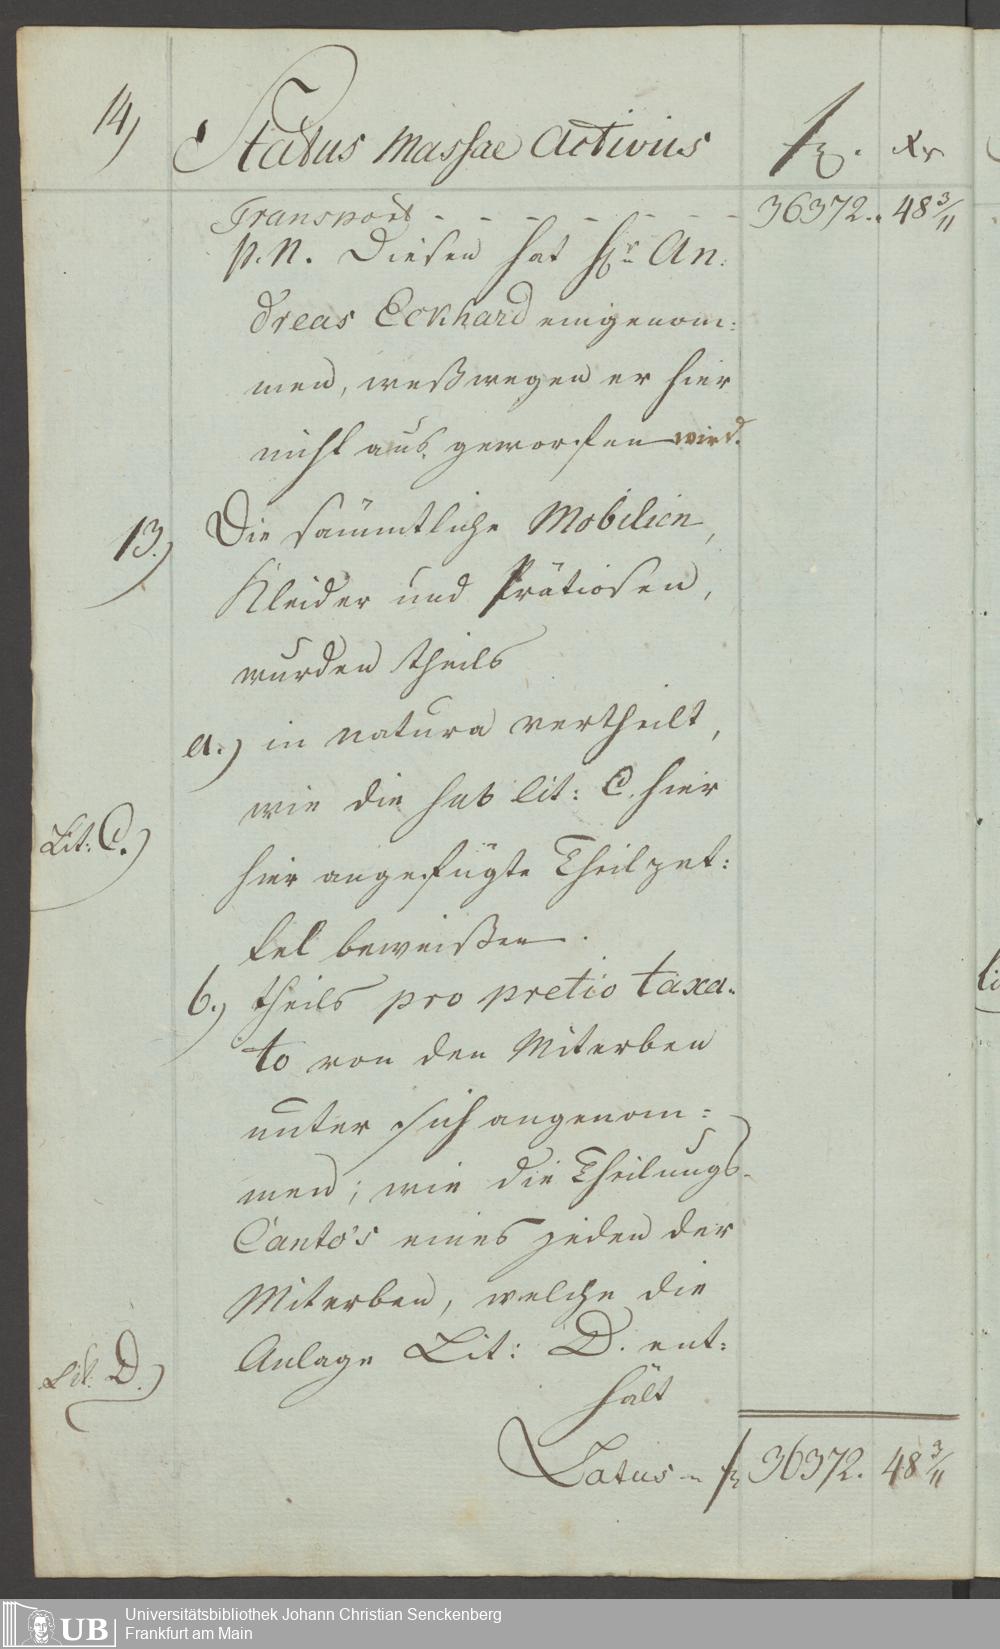 14) Status Massae Activus f. Xr
Transport - - - - - - - 36372.. 48 3/11
p. N. Diesen hat Hr An:
dreas Eckhard eingenom:
men, weßwegen er hier
nicht aus geworfen wird.
13.) Die sämmtliche Mobilien,
Kleider und Prätiosen,
wurden theils
a.) in natura vertheilt,
wie die sub lit: C. hier
Lit: C.)
hier angefügte Theilzet:
tel beweißen.
b.) theils pro pretio taxa:
to von den Miterben
unter sich angenom:
men; wie die Theilungs-
Conto's eines jeden der
Miterben, welche die
Anlage Lit: D. ent:
Lit. D.)
hält
Latus - f 36372. 48 3/11
UB Universitätsbibliothek Johann Christian Senckenberg
Frankfurt am Main